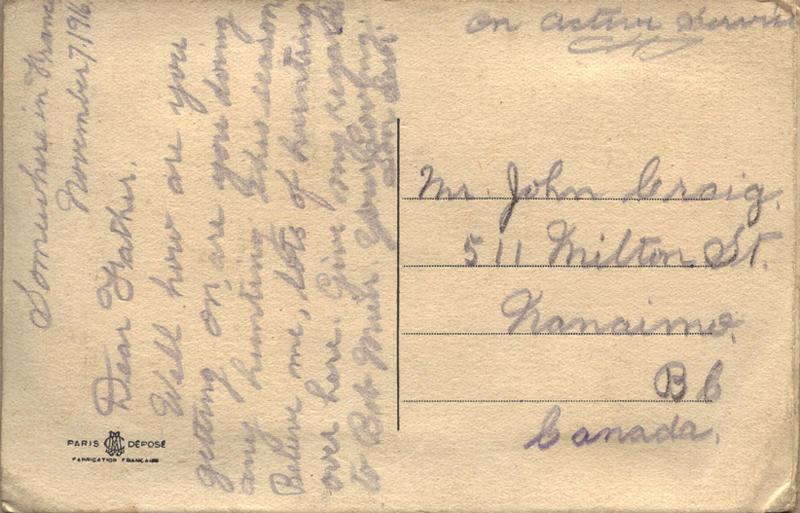 Somewhere in France
November 7, 1916
Dear Father.
Well how are you
getting on, are you doing
any hunting this season
Believe me, lots of hunting
over here. Give my regards
to Bob Muir Your loving
Son
On Active Service
Mr. John Craig.
511 Milton St.
Nanaimo,
B C
Canada,
PARIS DÉPOSÉ
FABRICATION FRANÇAISE